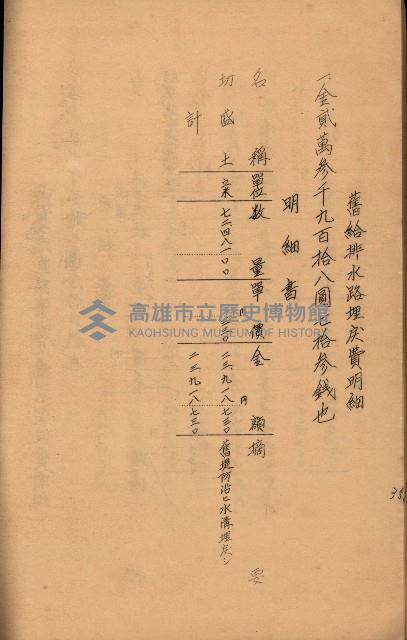 舊給排水路埋戻費明細
一金貳萬参千九百拾八圓七拾参錢也
明細書
名稱 單位 数量 單價 金額 摘要
切盛土 立米 七二四八一〇〇 三三〇 二三、九一八七三〇 舊堤防沿ヒ水溝埋戻シ
円
円
計 二三、九一八七三〇
高雄市立歷史博物館
KAOHSIUNG MUSEUM OF HISTORY